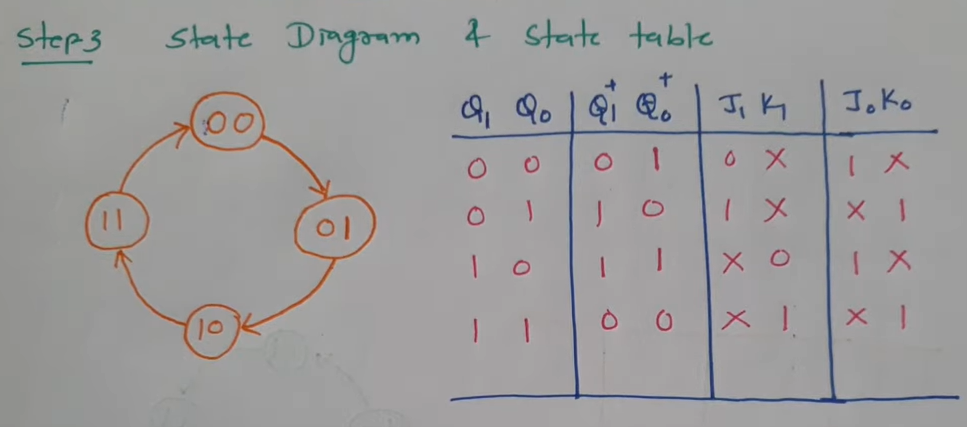 Step3 State Diagram & State table
Q₁ Q₀ Q₁⁺ Q₀⁺ J₁ K₁ J₀ K₀
00
0 0 0 1 0 X 1 X
11 01
0 1 1 0 1 X X 1
1 0 1 1 X 0 1 X
10
1 1 0 0 X 1 X 1